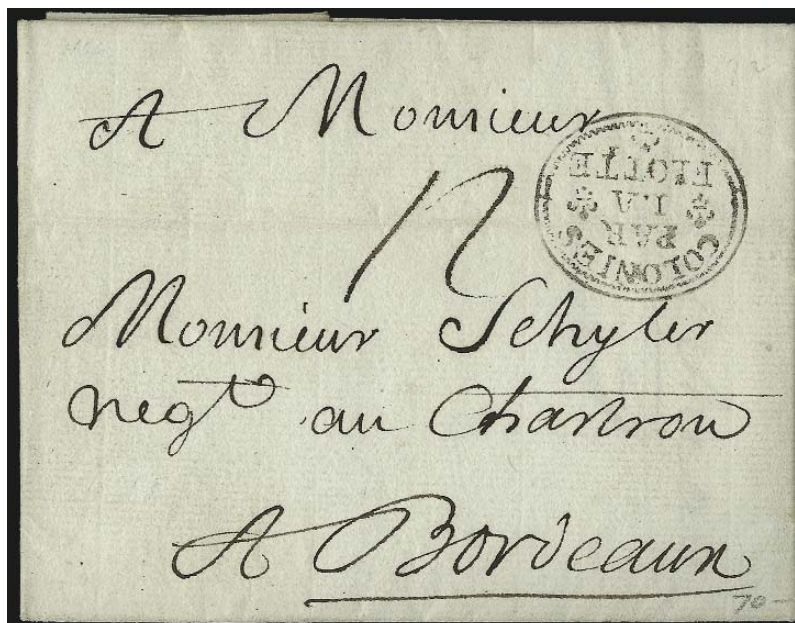 A Monsieur
12
COLONIES
PAR
LA
FLOTTE
Monsieur Schyler
negt au Chartron
A Bordeaux
70